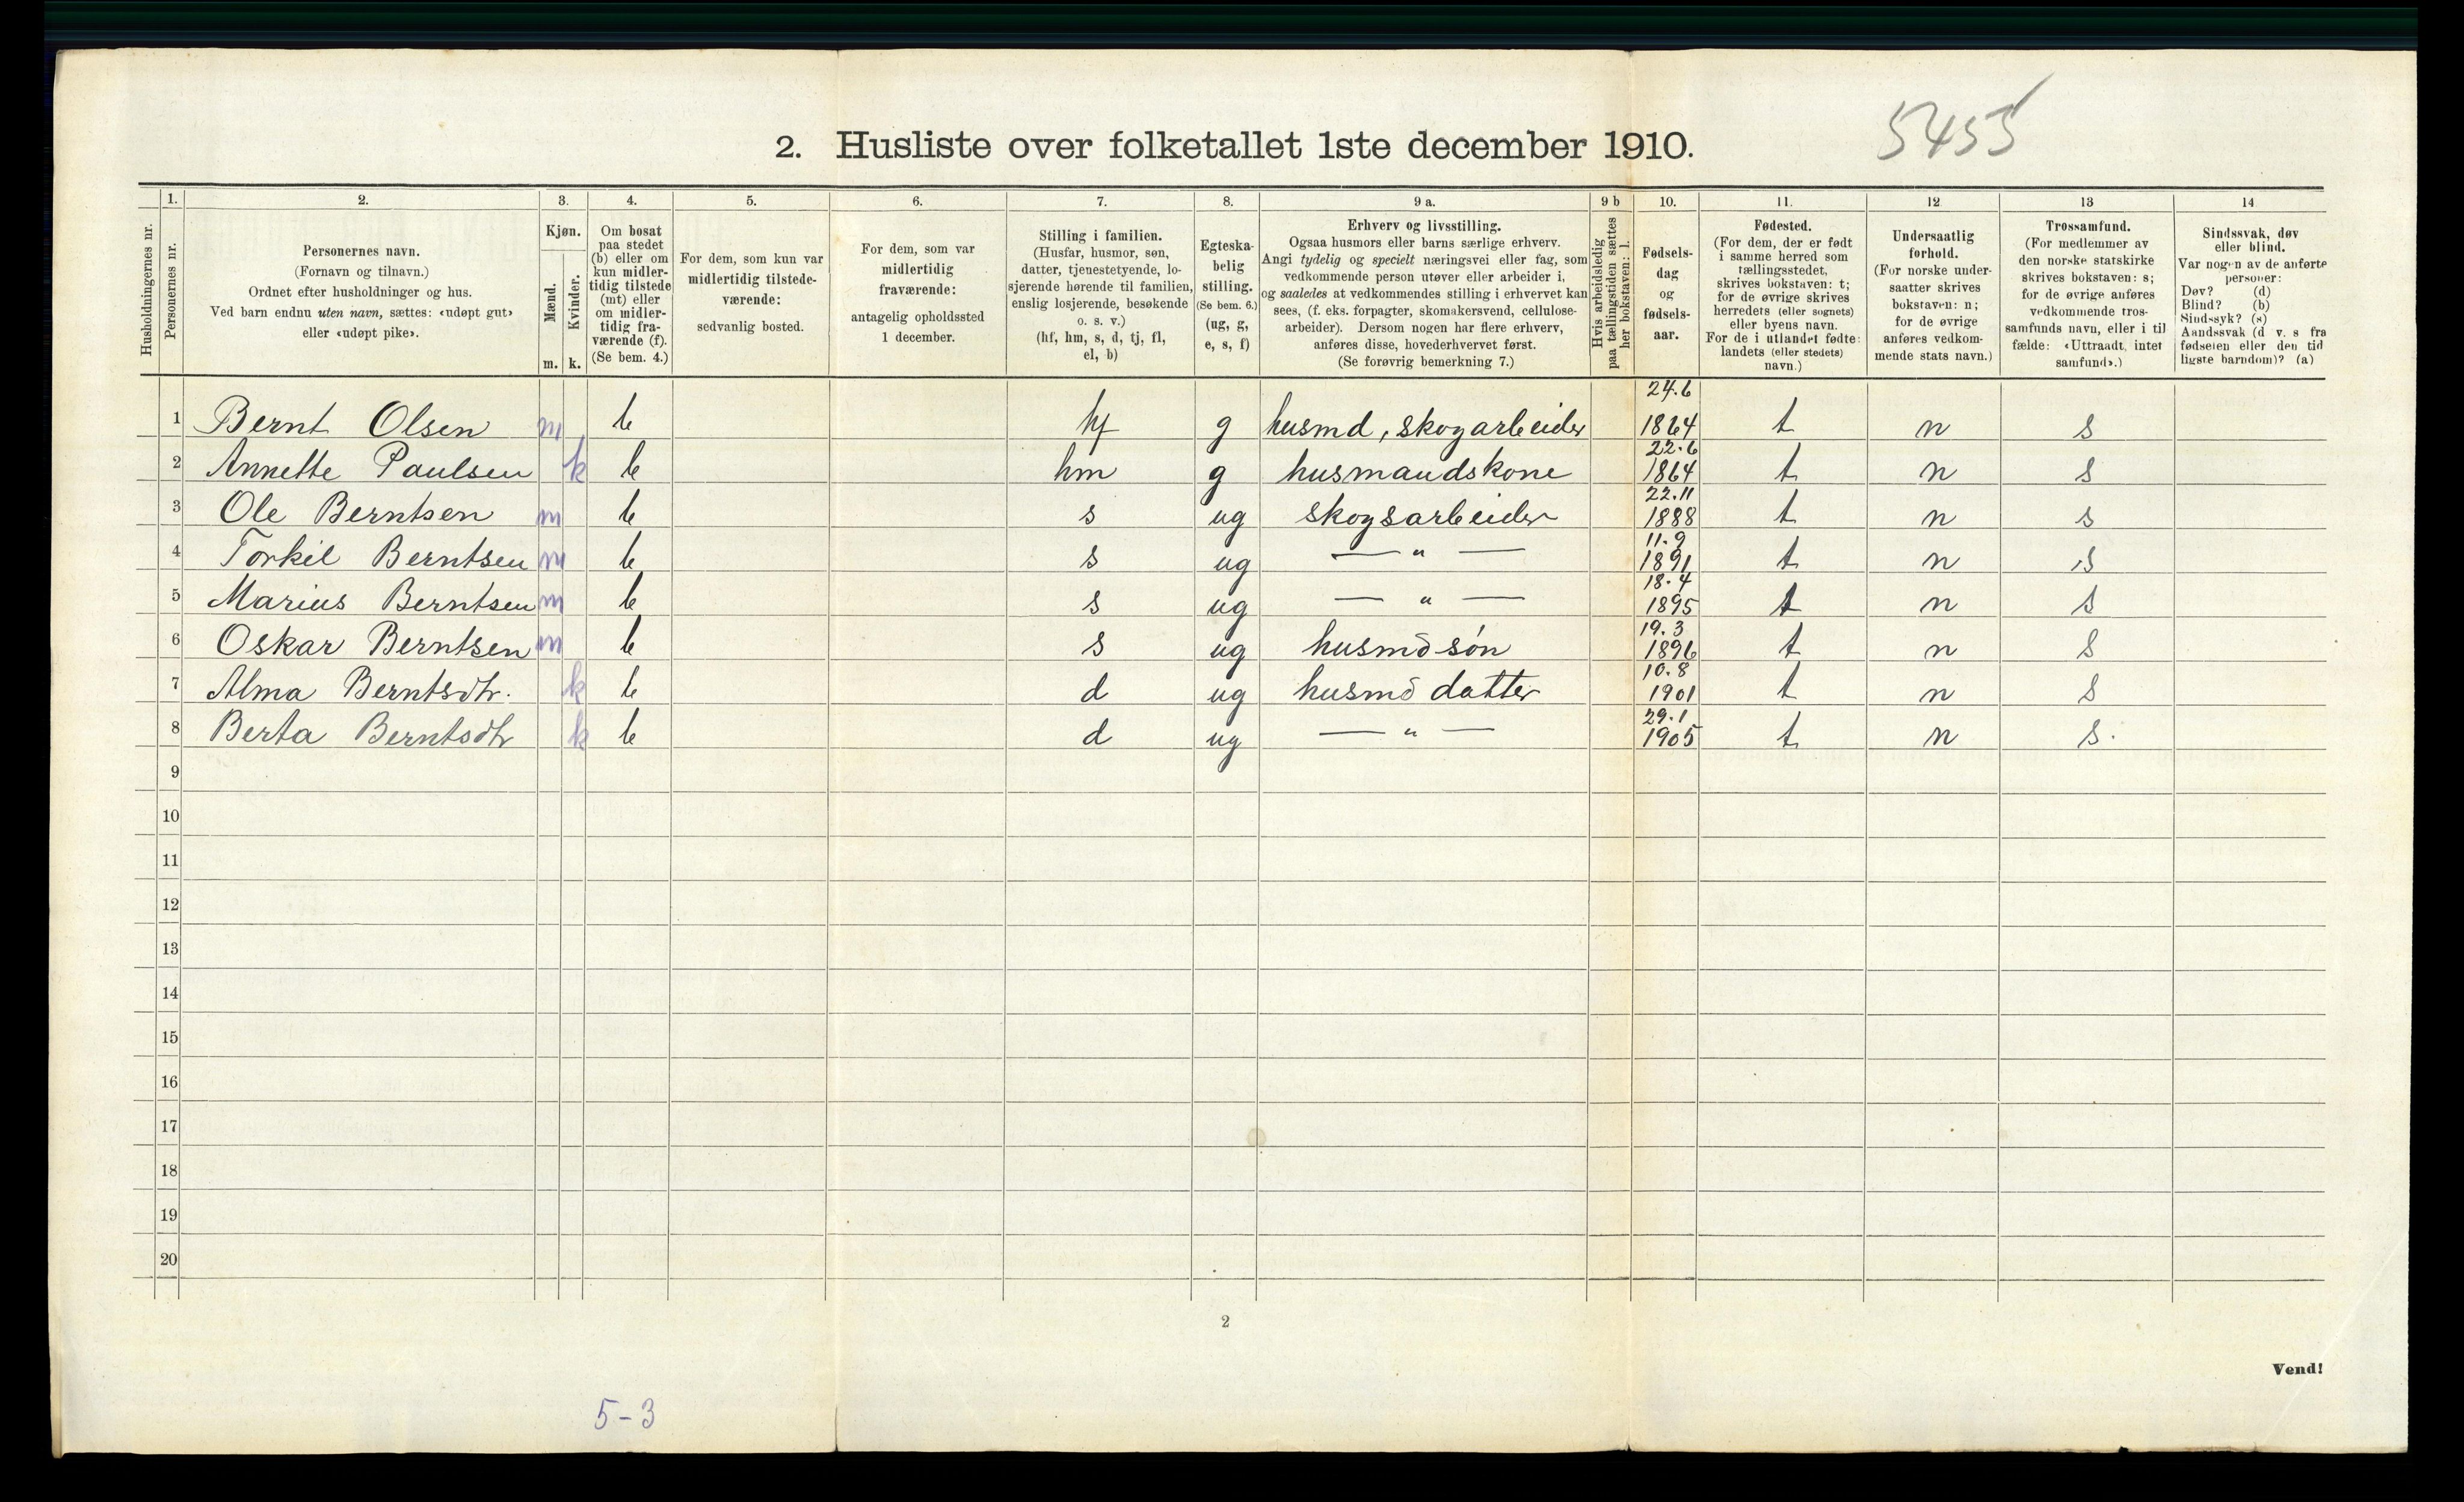 5455
2. Husliste over folketallet 1ste december 1910.
Husholdningernes nr.
1.
Personernes nr.
2.
Personernes navn.
(Fornavn og tilnavn.)
Ordnet efter husholdninger og hus.
Ved barn endnu uten navn, sættes: «udøpt gut»
eller «udøpt pike».
3.
Kjøn.
Mænd.
Kvinder.
m. k.
4.
Om bosat
paa stedet
(b) eller om
kun midler-
tidig tilstede
(mt) eller
om midler-
tidig fra-
værende (f).
(Se bem. 4.)
5.
For dem, som kun var
midlertidig tilstede-
værende:
sedvanlig bosted.
6.
For dem, som var
midlertidig
fraværende:
antagelig opholdssted
1 december.
7.
Stilling i familien.
(Husfar, husmor, søn,
datter, tjenestetyende, lo-
sjerende hørende til familien,
enslig losjerende, besøkende
o. s. v.)
(hf, hm, s, d, tj, fl,
el, b)
8.
Egteska-
belig
stilling.
(Se bem. 6.)
(ug, g,
e, s, f)
9 a.
Erhverv og livsstilling.
Ogsaa husmors eller barns særlige erhverv.
Angi tydelig og specielt næringsvei eller fag, som
vedkommende person utøver eller arbeider i,
og saaledes at vedkommendes stilling i erhvervet kan
sees, (f. eks. forpagter, skomakersvend, cellulose-
arbeider). Dersom nogen har flere erhverv,
anføres disse, hovederhvervet først.
(Se forøvrig bemerkning 7.)
9 b
Hvis arbeidsledig
paa tællingstiden sættes
her bokstaven: l.
10.
Fødsels-
dag
og
fødsels-
aar.
11.
Fødested.
(For dem, der er født
i samme herred som
tællingsstedet,
skrives bokstaven: t;
for de øvrige skrives
herredets (eller sognets)
eller byens navn.
For de i utlandet fødte:
landets (eller stedets)
navn.)
12
Undersaatlig
forhold.
(For norske under-
saatter skrives
bokstaven: n;
for de øvrige
anføres vedkom-
mende stats navn.)
13
Trossamfund.
(For medlemmer av
den norske statskirke
skrives bokstaven: s;
for de øvrige anføres
vedkommende tros-
samfunds navn, eller i til
fælde: «Uttraadt, intet
samfund».)
14
Sindssvak, døv
eller blind.
Var nogen av de anførte
personer:
Døv? (d)
Blind? (b)
Sindssyk? (s)
Aandssvak (d v. s fra
fødselen eller den tid
ligste barndom)? (a)
1 Bernt Olsen m b hf g husmd, skogarbeider 24.6 1864 t n s
2 Annette Paulsen k b hm g husmandskone 22.6 1864 t n s
3 Ole Berntsen m b s ug skogsarbeider 22.11 1888 t n s
4 Torkil Berntsen m b s ug — " — 11.9 1891 t n s
5 Marius Berntsen m b s ug — " — 18.4 1895 t n s
6 Oskar Berntsen m b s ug husmd søn 19.3 1896 t n s
7 Alma Berntsdtr. k b d ug husmd datter 10.8 1901 t n s
8 Berta Berntsdtr k b d ug — " — 29.1 1905 t n s.
9
10
11
12
13
14
15
16
17
18
19
20
2
Vend!
5-3